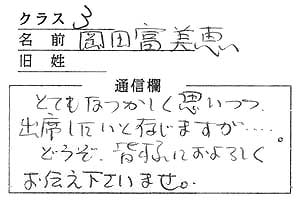 クラス 3
名前 岡田富美恵
旧姓
通信欄
とてもなつかしく思いつつ、
出席したいと存じますが‥‥。
どうぞ、皆様によろしく
お伝え下さいませ。